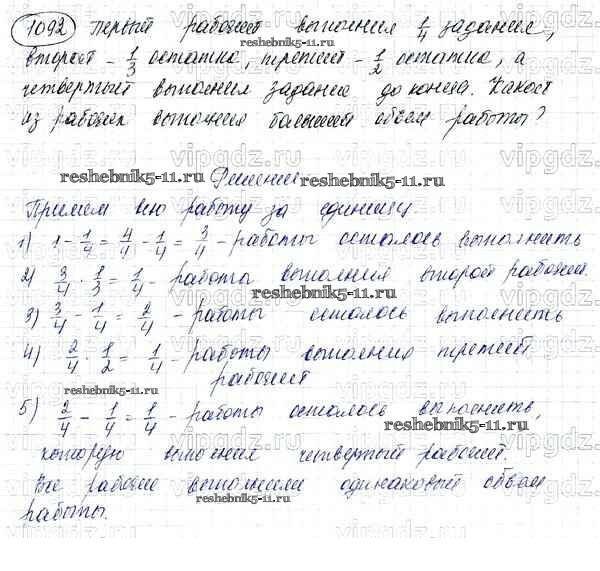 1092 Первый рабочий выполнил 1/4 задания,
reshebnik5-11.ru
второй – 1/3 остатка, третий – 1/2 остатка, а
четвертый выполнил задание до конца. Какой
из рабочих выполнил больший объем работы?
vipgdz.ru
Решение
reshebnik5-11.ru reshebnik5-11.ru
Примем всю работу за единицу.
1) 1 - 1/4 = 4/4 - 1/4 = 3/4 - работы осталось выполнить
2) 3/4 · 1/3 = 1/4 - работы выполнил второй рабочий.
reshebnik5-11.ru
3) 3/4 - 1/4 = 2/4 - работы осталось выполнить
4) 2/4 · 1/2 = 1/4 - работы выполнил третий
рабочий
reshebnik5-11.ru
5) 2/4 - 1/4 = 1/4 - работы осталось выполнить,
reshebnik5-11.ru
которую выполнил четвертый рабочий.
Все рабочие выполнили одинаковый объем
reshebnik5-11.ru
работы.